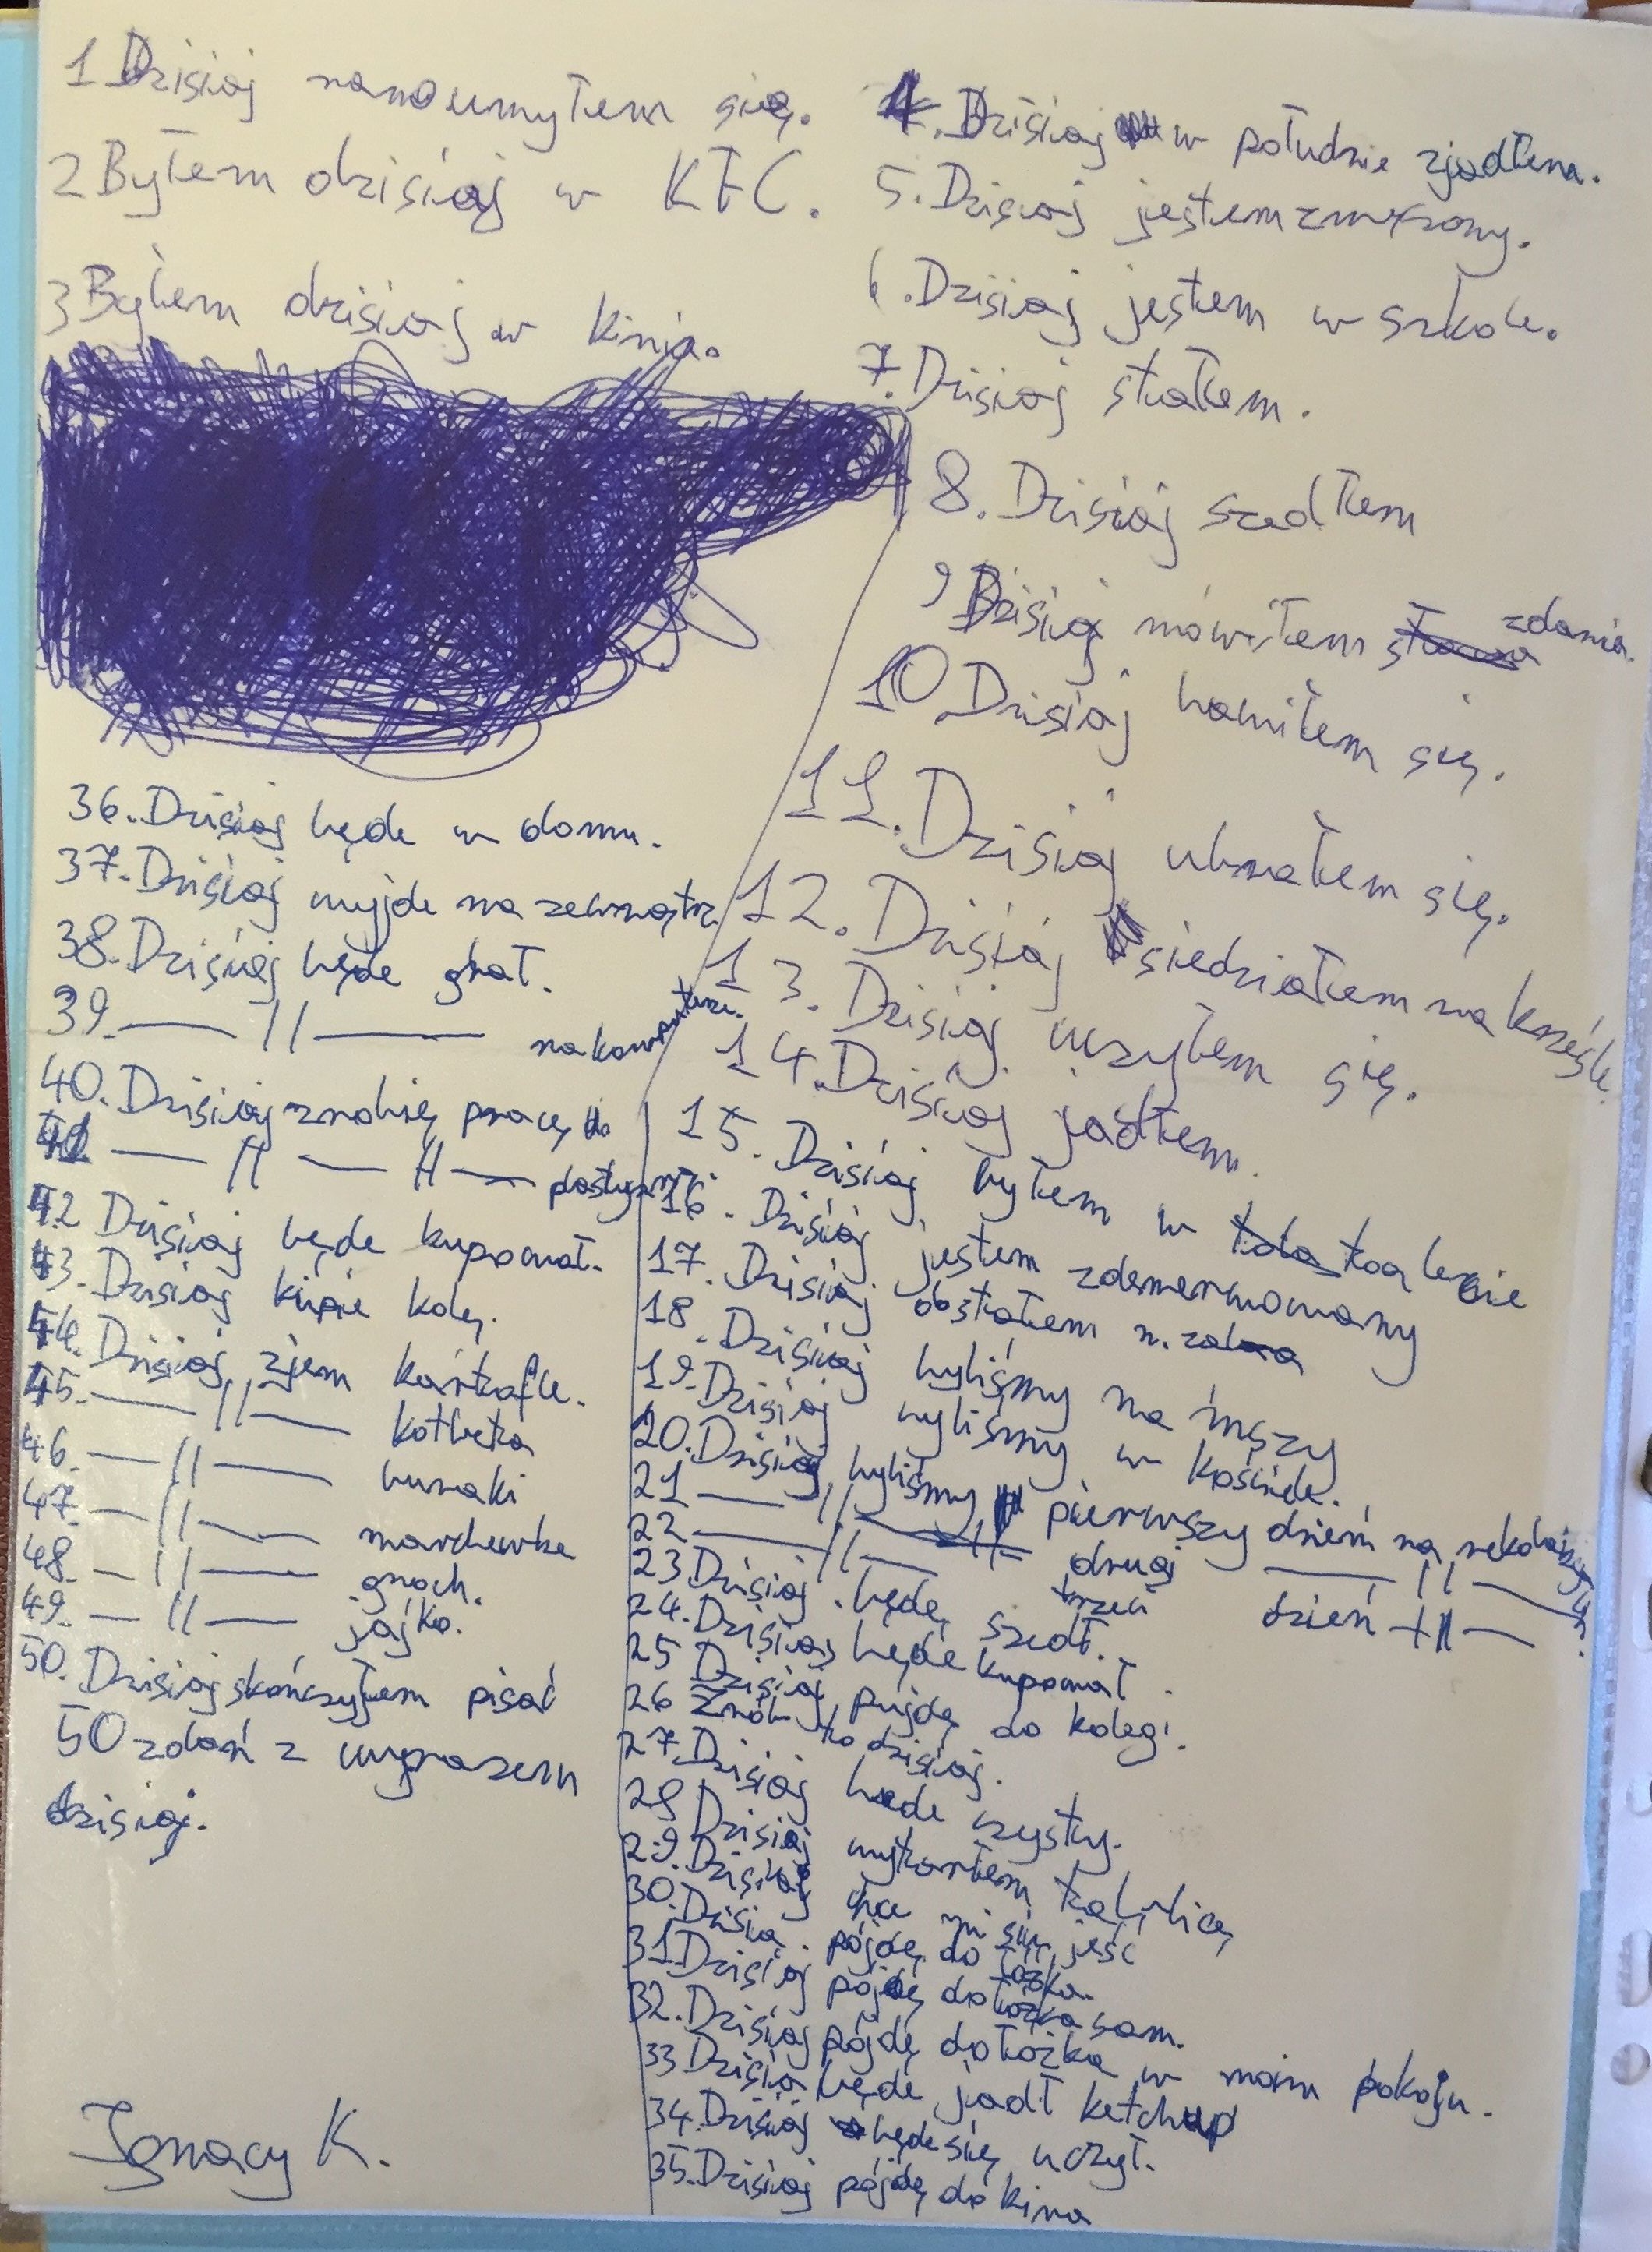 1 Dzisiaj rano umyłem się.
2 Byłem dzisiaj w KFC.
3 Byłem dzisiaj w kinie.
4. Dzisiaj w południe zjadłem.
5. Dzisiaj jestem zmęczony.
6. Dzisiaj jestem w szkole.
7. Dzisiaj stałem.
8. Dzisiaj szedłem
9 Dzisiaj mówiłem zdania.
10 Dzisiaj bawiłem się.
11. Dzisiaj ubrałem się.
12. Dzisiaj siedziałem na krześle
13. Dzisiaj uczyłem się.
14. Dzisiaj jadłem.
15. Dzisiaj byłem w toalecie
16. Dzisiaj jestem zdenerwowany
17. Dzisiaj dostałem
18. Dzisiaj byliśmy na mszy
19. Dzisiaj byliśmy w kościele.
20. Dzisiaj byliśmy pierwszy dzień na rekolekcjach
21 — // — drugi — // —
22 — // — trzeci dzień — // —
23 Dzisiaj będę szedł.
24. Dzisiaj będę kupował.
25 Dzisiaj pujdę do kolegi.
26 Zrób to dzisiaj.
27. Dzisiaj będe czysty.
28 Dzisiaj wytarłem tablicę
29. Dzisiaj chce mi się jeść
30. Dzisiaj pójdę do łóżka.
31 Dzisiaj pójdę do łóżka sam.
32. Dzisiaj pójdę do łóżka w moim pokoju.
33 Dzisiaj będe jadł ketchup
34. Dzisiaj będe się uczył.
35. Dzisiaj pójdę do kina
36. Dzisiaj będe w domu.
37. Dzisiaj wyjde na zewnątrz
38. Dzisiaj będe grał.
39. — // — na komputerze.
40. Dzisiaj zrobię pracę
41 — // — // — plastyczną.
42 Dzisiaj będe kupował.
43. Dzisiaj kupie kolę.
44. Dzisiaj zjem kartofle.
45. — // — kotleta
46. — // — buraki
47. — // — marchewke
48. — // — groch.
49. — // — jajko.
50. Dzisiaj skończyłem pisać
50 zdań z wyrazem
dzisiaj.
Ignacy K.